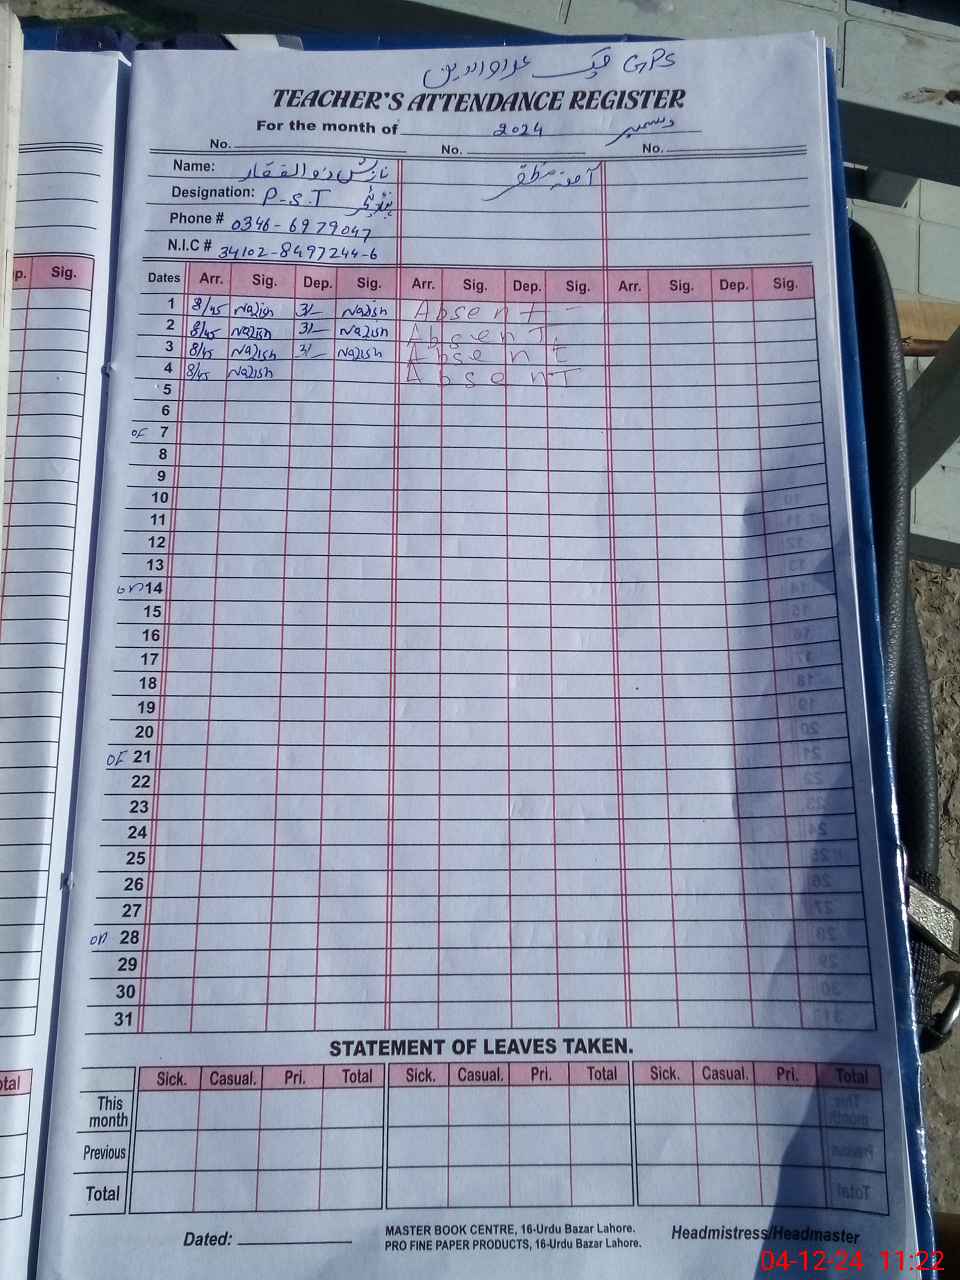 GPS چک علاوالدین
TEACHER'S ATTENDANCE REGISTER
For the month of 2024 دسمبر
No. No. No.
Name: نازش ذوالفقار آمنہ مظفر
Designation: P-S-T
Phone # 0346-6979047
N.I.C # 34102-8497244-6
p. Sig.
Dates Arr. Sig. Dep. Sig. Arr. Sig. Dep. Sig. Arr. Sig. Dep. Sig.
1 8/45 Nazish 3/- Nazish Absent -
2 8/45 Nazish 3/- Nazish AbsenT
3 8/45 Nazish 3/- Nazish Absent
4 8/45 Nazish AbsenT
5
6
OF 7
8
9
10
11
12
13
on 14
15
16
17
18
19
20
OF 21
22
23
24
25
26
27
on 28
29
30
31
STATEMENT OF LEAVES TAKEN.
otal
Sick. Casual. Pri. Total Sick. Casual. Pri. Total Sick. Casual. Pri. Total
This month
Previous
Total
Dated:
MASTER BOOK CENTRE, 16-Urdu Bazar Lahore.
PRO FINE PAPER PRODUCTS, 16-Urdu Bazar Lahore.
Headmistress/Headmaster
04-12-24 11:22